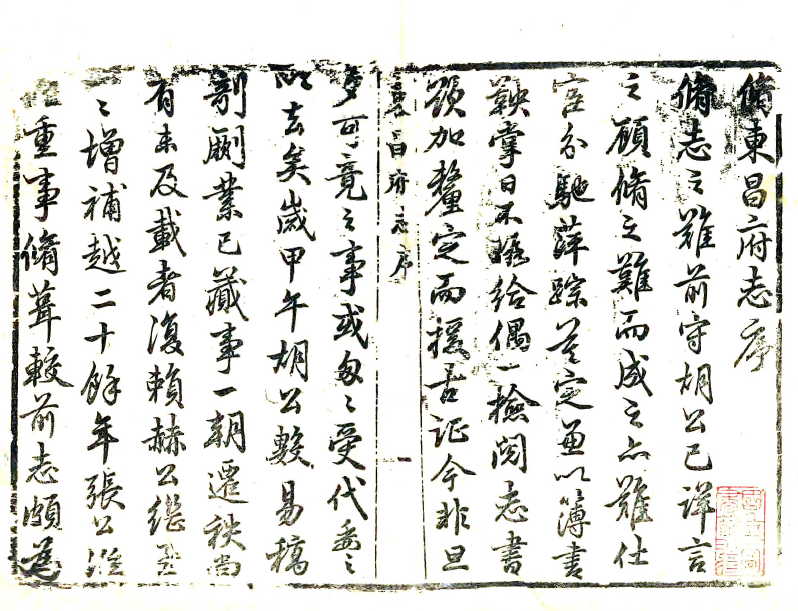 脩東昌府志序
脩志之難前守胡公已詳言
之顧脩之難而成之亦難仕
宦分馳萍踪莫定兼以簿書
鞅掌日不暇給偶一檢閱志書
須加釐定而援古証今非旦
東昌府志序
一
夕可竟之事或匆〻受代委之
以去矣歲甲午胡公數易稿
剞劂業已蕆事一朝遷秩尚
有未及載者復賴赫公繼至
〻增補越二十餘年張公
重事脩葺較前志頗為